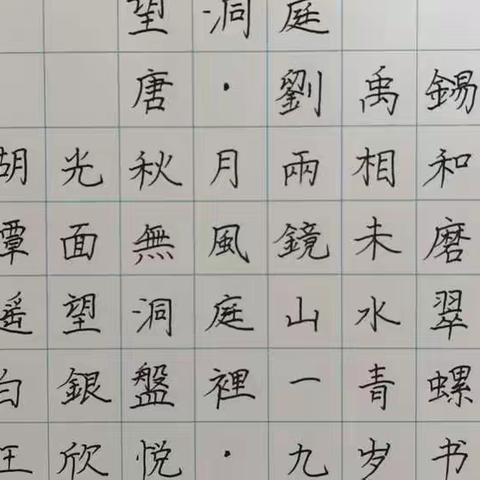 望洞庭
唐·劉禹錫
湖光秋月兩相和
潭面無風鏡未磨
遥望洞庭山水翠
白銀盤裡一青螺
王欣悦·九岁书